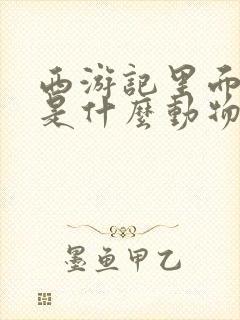 西游記里而
是什麼動物
墨魚甲乙